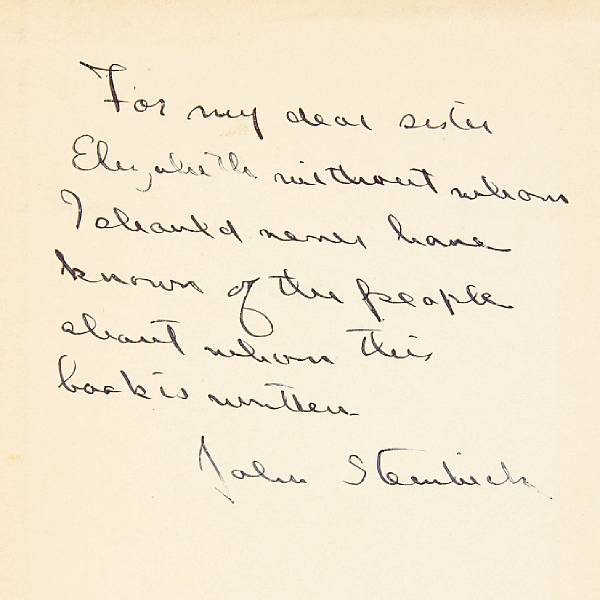 For my dear sister
Elizabeth without whom
I should never have
known of the people
about whom this
book is written
John Steinbeck